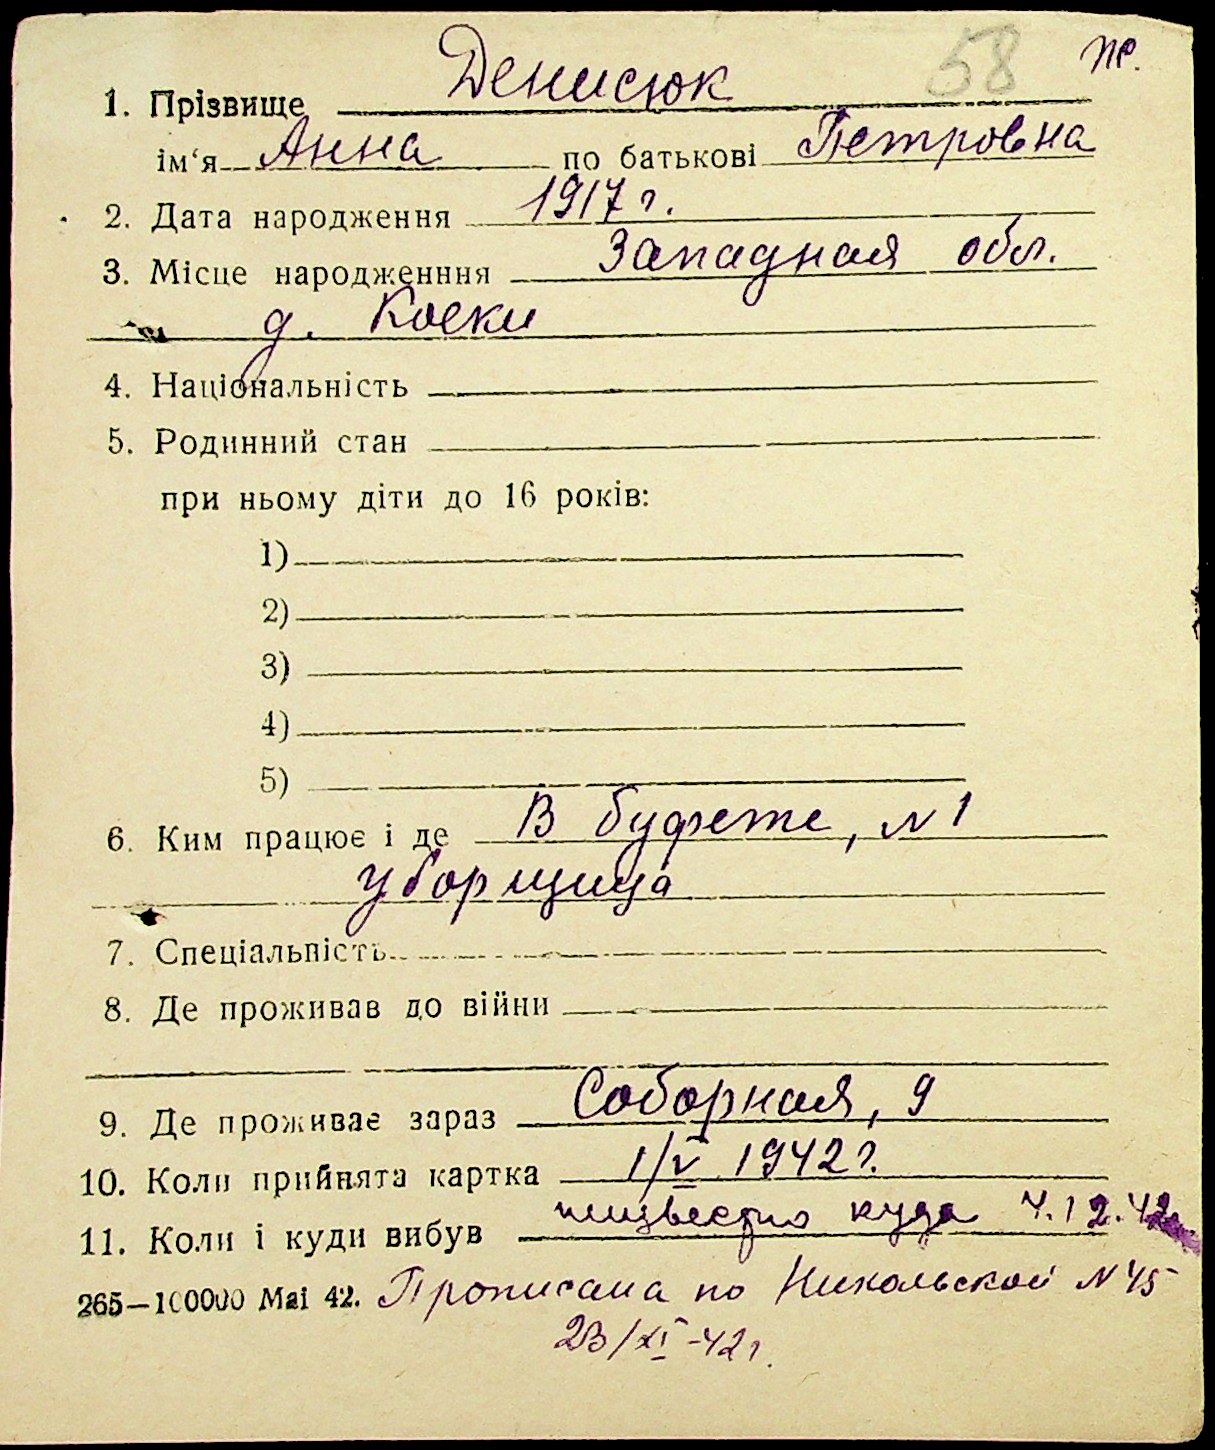 58 пр.
1. Прізвище Денисюк
ім'я Анна по батькові Петровна
2. Дата народження 1917 г.
3. Місце народженння Западная обл.
д. Коски
4. Національність
5. Родинний стан
при ньому діти до 16 років:
1)
2)
3)
4)
5)
6. Ким працює і де В буфете, N 1
уборщица
7. Спеціальність
8. Де проживав до війни
9. Де проживає зараз Соборная, 9
10. Коли прийнята картка 1/V 1942 г.
11. Коли і куди вибув неизвестно куда 4.12.42
265—100000 Mai 42. Прописана по Никольской N 45
23/XI-42 г.